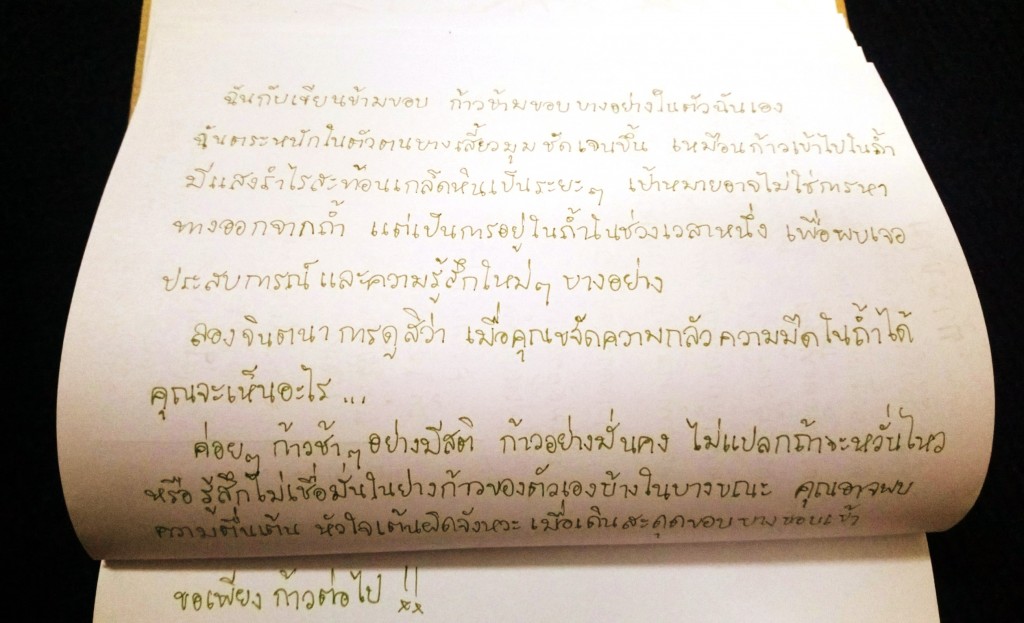 ฉันกับเขียนข้ามขอบ ก้าวข้ามขอบบางอย่างในตัวฉันเอง
ฉันตระหนักในตัวตนบางเสี้ยวมุมชัดเจนขึ้น เหมือนก้าวเข้าไปในถ้ำ
มีแสงรำไรสะท้อนเกล็ดหินเป็นระยะๆ เป้าหมายอาจไม่ใช่การหา
ทางออกจากถ้ำ แต่เป็นการอยู่ในถ้ำในช่วงเวลาหนึ่ง เพื่อพบเจอ
ประสบการณ์และความรู้สึกใหม่ๆ บางอย่าง
ลองจินตนาการดูสิว่า เมื่อคุณขจัดความกลัวความมืดในถ้ำได้
คุณจะเห็นอะไร...
ค่อยๆ ก้าวช้าๆ อย่างมีสติ ก้าวอย่างมั่นคง ไม่แปลกถ้าจะหวั่นไหว
หรือรู้สึกไม่เชื่อมั่นในย่างก้าวของตัวเองบ้างในบางขณะ คุณอาจพบ
ความตื่นเต้น หัวใจเต้นผิดจังหวะ เมื่อเดินสะดุดขอบบางขอบเข้า
ขอเพียงก้าวต่อไป !!